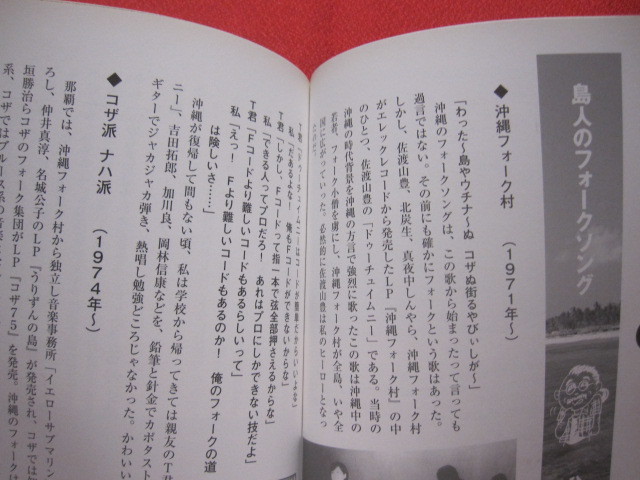 島人のフォークソング
◆沖縄フォーク村　（1971年〜）
「わった〜島やウチナ〜ぬ　コザぬ街るやびぃしが〜」
沖縄のフォークソングは、この歌から始まったって言っても
過言ではない。その前にも確かにフォークという歌はあった。
しかし、佐渡山豊、北炭生、真夜中しんやら、沖縄フォーク村
がエレックレコードから発売したLP『沖縄フォーク村』の中
のひとつ、佐渡山豊の「ドゥーチュイムニー」である。当時の
沖縄の時代背景を沖縄の方言で強烈に歌ったこの歌は沖縄中の
若者、フォーク小僧を虜にし、沖縄フォーク村が全島、いや全
国に広がっていった。必然的に佐渡山豊は私のヒーローとなっ
T君「ドゥーチュイムニーはコードが簡単だからいいよな」
私「だあるよな！　俺もFコードができないからな」
T君「しかし、Fコードって指一本で弦全部押さえるからな」
私「できる人ってプロだろ！　あれはプロにしかできない技だよ」
T君「Fコードより難しいコードもあるらしいって」
私「えっ！　Fより難しいコードもあるのか！　俺のフォークの道
は険しいさ……」
沖縄が復帰して間もない頃、私は学校から帰ってきては親友のT君
ニー」、吉田拓郎、加川良、岡林信康などを、鉛筆と針金でカポタスト
ギターでジャカジャカ弾き、熱唱し勉強どころじゃなかった。かわいい
◆コザ派　ナハ派　（1974年〜）
那覇では、沖縄フォーク村から独立した音楽事務所「イエローサブマリン
ろし、仲井真淳、名城公子のLP「うりずんの島」が発売され、コザでは
垣勝治らコザのフォーク集団がLP「コザ75」を発売。沖縄のフォークは
系、コザではブルース系の音楽